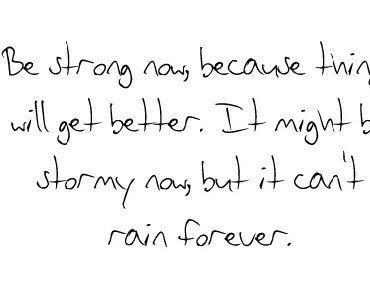 Be strong now, because thin
will get better. It might b
stormy now, but it can't
rain forever.